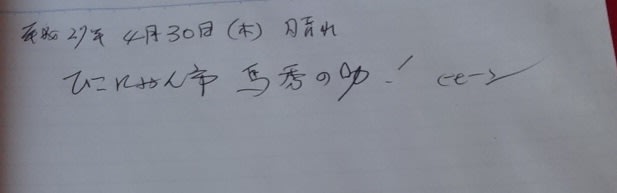 平成27年 4月30日 (木) 晴れ
ひこにゃん市 馬秀の !